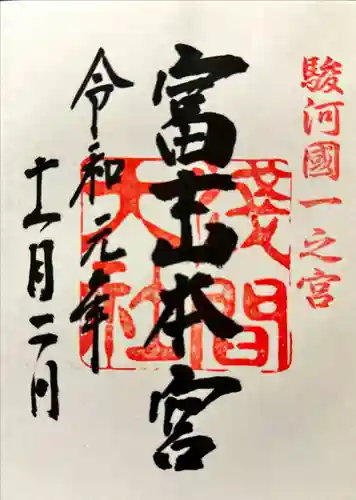 駿河國一之宮
富士本宮
淺間大社
令和元年
十一月二日